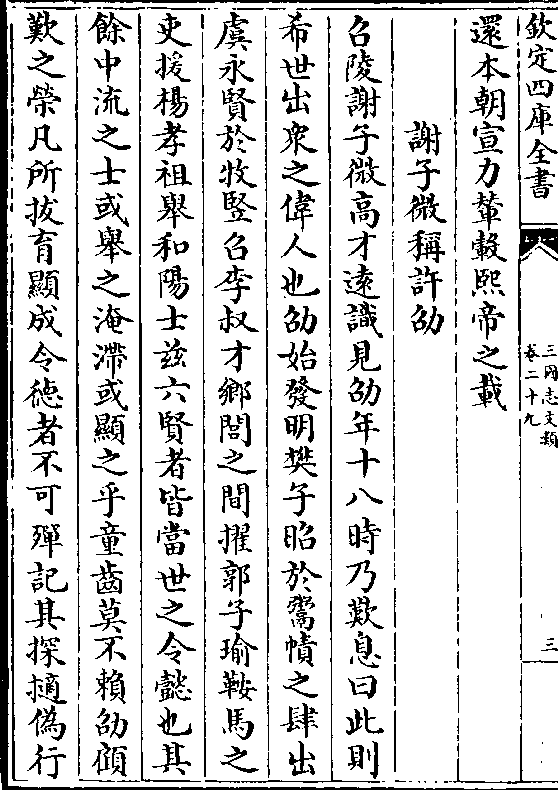 欽定四庫全書
三國志文類
卷二十九
三
還本朝宣力輦轂熙帝之載
謝子微稱許劭
召陵謝子微高才遠識見劭年十八時乃歎息曰此則
希世出衆之偉人也劭始發明樊子昭於鬻幘之肆出
虞永賢於牧豎召李叔才鄉閭之間擢郭子瑜鞍馬之
吏援楊孝祖舉和陽士茲六賢者皆當世之令懿也其
餘中流之士或舉之淹滯或顯之乎童齒莫不賴劭顧
歎之榮凡所拔育顯成令德者不可殫記其探擿偽行